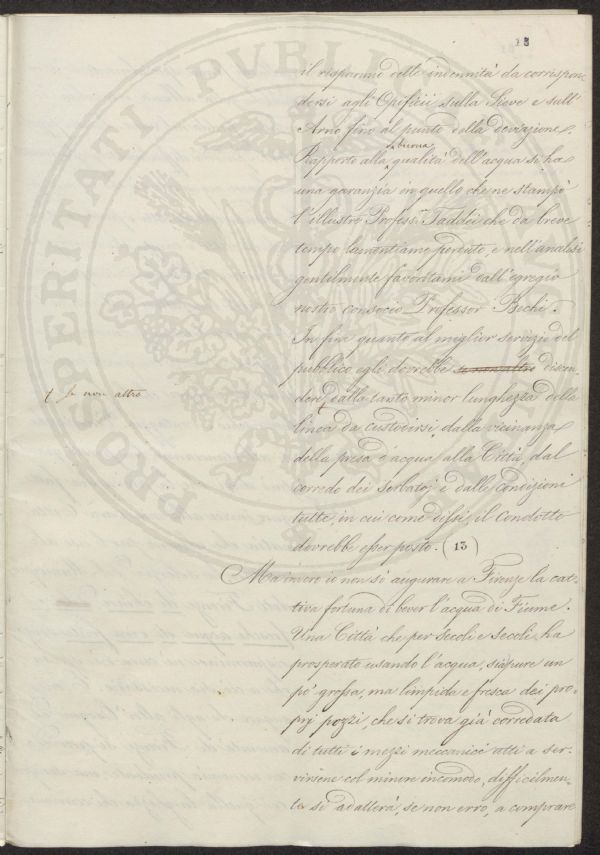 13
il risparmio delle indennità da corrispon
dersi agli Opificii sulla Sieve e sull'
Arno fino al punto della deviazione.
buona
Rapporto alla qualità dell'acqua si ha
una garanzia in quello che ne stampò
l'illustre Profess.r Taddei che da breve
tempo lamentiamo perduto, e nell'analisi
gentilmente favoritami dall'egregio
nostro consocio Professor Bechi.
In fin quanto al miglior servizio del
pubblico egli dovrebbe se non altro discen-
dere, dalla tanto minor lunghezza della
† Se non altro
linea da custodirsi, dalla vicinanza
della presa d'acqua alla Città, dal
corredo dei serbatoj e dalle condizioni
tutte, in cui come dissi, il condotto
dovrebbe esser posto. (13)
Ma invero io non so augurare a Firenze la cat
tiva fortuna di bever l'acqua di Fiume.
Una Città che per secoli e secoli, ha
prosperato usando l'acqua, siapure un
po' grossa, ma limpida e fresca dei pro-
prj pozzi, che si trova già corredata
di tutti i mezzi meccanici atti a ser-
virsene col minore incomodo, difficilmen-
te si adatterà, se non erro, a comprare
PROSPERITATI PVBLICAE